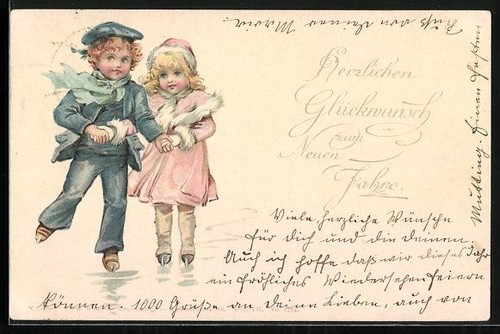 Herzlichen
Glückwunsch
zum
Neuen
Jahre.
Viele, herzliche Wünsche
für dich und die deinen
Auch ich hoffe daß wir dieses Jahr
ein fröhliches Wiedersehen feiern
können. 1000 Grüße an deine Lieben, auch von
Mutting. Einen festen
Kuß von deiner Maria.